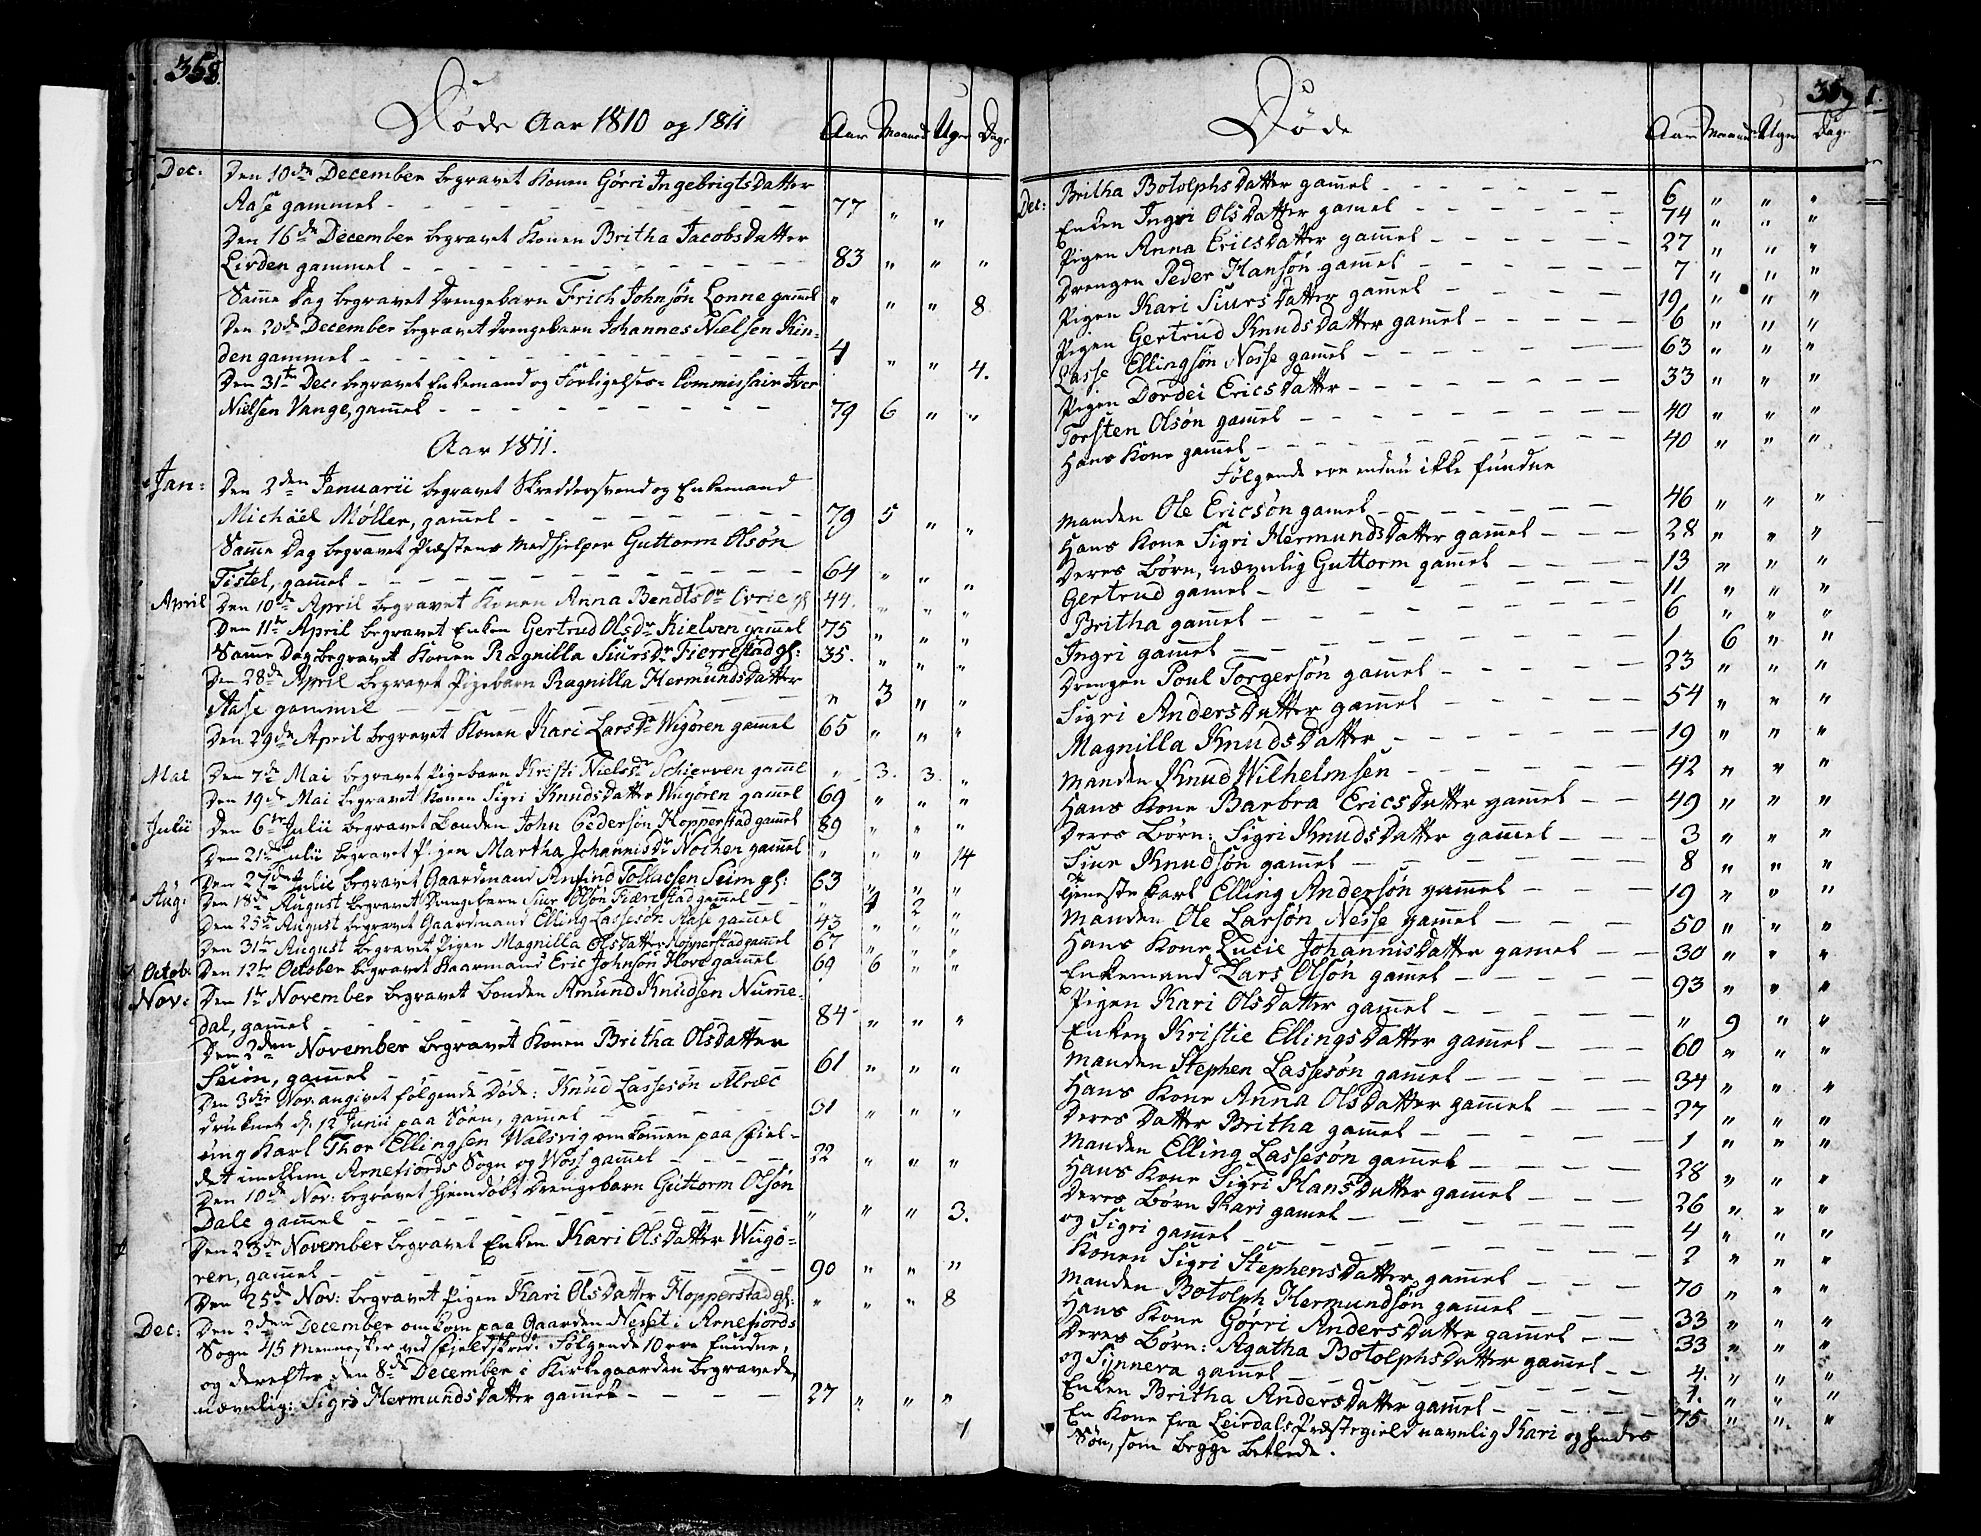 358.
Døde Aar 1810 og 1811
Aar Maaned Uger Dage
Dec. Den 10de December begravet Konen Gørri IngebrigtsDatter
Aase gammel - 77 " "
Den 16de December begravet Konen Britha JacobsDatter
Lirden gammel - 83 " " "
Samme Dag begravet Drengebarn Frich Johnsøn Lonne gammel " " " 8
Den 20de December begravet Drengebarn Johannes Nielsen Kin-
den gammel - 4 " " 4.
Den 31te Dec: begravet Enkemand og Forligelses-Commissair Iver
Nielsen Vange, gammel - 79 6 " "
Aar 1811.
Jan: Den 2den Januarii begravet Skreddersvend og Enkemand
Michäel Møller, gammel - 79 5 " "
Samme Dag begravet Præstens Medhjelper Guttorm Olsøn
Tistel, gammel - 64 " " "
April Den 10de April begravet Konen Anna Bendtsdr Evrie gl 44. " " "
Den 11te April begravet Enken Gertrud Olsdr Kielven gammel 75 " " "
Samme Dag begravet Konen Ragnilla Siursdr Fierrestad gl: 35. " " "
Den 28de April begravet Pigebarn Ragnilla HermundsDatter
Aase gammel - " 3 " "
Den 29de April begravet Konen Kari Larsdr Wigøren gammel 65 " " "
Mai Den 7de Mai begravet Pigebarn Kristi Nielsdr Schierven gammel " 3. 3. "
Den 19de Mai begravet Konen Sigri KnudsDatter Wigøren gammel 69 " " "
Julii Den 6te Julii begravet Bonden John Pedersøn Hopperstad gammel 89 " " "
Den 21de Julii begravet Pigen Martha Johannisdr Nochen gammel " " " 14
Den 27de Julii begravet Gaardmand Anfind Tollacsen Seim gl: 63 " " "
Aug: Den 18de August begravet Drengebarn Siur Olsøn Fiærestad gammel " 4 2 "
Den 25de August begravet Gaardmand Elling Lassesøn Aase gammel 43 " " "
Den 31te August begravet Pigen Magnilla OlsDatter Hopperstad gammel 67 " " "
Octob. Den 12te October begravet Kaarmand Eric Johnsøn Hove gammel 69 6 " "
Nov: Den 1te November begravet Bonden Amund Knudsen Numme-
dal, gammel - 84 " " "
Den 2den November begravet Konen Britha OlsDatter
Seim, gammel - 61 " " "
Den 3die Nov. angivet følgende Døde: Knud Lassesøn Alræc
druknet d. 12 Junii paa Søen, gammel - 31 " " "
ung Karl Thor Ellingsen Walsvig omkommen paa Fiel-
det imellem Arnefiords Sogn og Woss gammel - 22 " " "
Den 10de Nov: begravet hjemdøbt Drengebarn Guttorm Olsøn
Dale gammel - " " " 3.
Den 23de November begravet Enken Kari OlsDatter Wigø-
ren, gammel - 90 " " "
Den 25de Nov: begravet Pigen Kari OlsDatter Hopperstad gl: " " " 8
Dec: Den 2den December omkom paa Gaarden Nesset i Arnefiords
Sogn 45 Mennesker ved Fjeldskred. Følgende 10 ere fundne,
og derefter den 8de December i Kirkegaarden begravede,
nævnlig: Sigri HermundsDatter gammel - 27 " " "
1
359
Døde
Aar Maaned Uger Dage
Dec: Britha BotolphsDatter gammel - 6 " " "
Enken Ingri OlsDatter gammel - 74 " " "
Pigen Anna EricsDatter gammel - 27 " " "
Drengen Peder Hansøn gammel - 7 " " "
Pigen Kari SiursDatter gammel - 19 " " "
Pigen Gertrud KnudsDatter gammel - 6 " " "
Lasse Ellingsøn Nesse gammel - 63 " " "
Pigen Dordei EricsDatter - 33 " " "
Torsten Olsøn gammel - 40 " " "
Hans Kone gammel - 40 " " "
Følgende ere endnu ikke fundne
Manden Ole Ericsøn gamel - 46 " " "
Hans Kone Sigri HermundsDatter gammel - 28 " " "
Deres Børn, nævnlig Guttorm gammel - 13 " " "
Gertrud gamel - 11 " " "
Britha gammel - 6 " " "
Ingri gammel - 1 6 " "
Drengen Poul Torgersøn gammel - 23 " " "
Sigri AndersDatter gammel - 54 " " "
Magnilla KnudsDatter - 19 " " "
Manden Knud Wilhelmsen - 42 " " "
Hans Kone Barbra EricsDatter gammel - 49 " " "
Deres Børn: Sigri KnudsDatter gammel - 3 " " "
Siur Knudsøn gammel - 8 " " "
Tjeneste Karl Elling Andersøn gammel - 19 " " "
Manden Ole Larsøn Nesse gammel - 50 " " "
Hans Kone Lucie JohannisDatter gamel - 30 " " "
Enkemand Lars Olsøn gamel - 93 " " "
Pigen Kari OlsDatter gammel - " 9 " "
Enken Kristie EllingsDatter gammel - 60 " " "
Manden Stephen Lassesøn gammel - 34 " " "
Hans Kone Anna OlsDatter gammel - 27 " " "
Deres Datter Britha gammel - 1 " " "
Manden Elling Lassesøn gammel - 28 " " "
Hans Kone Sigri HansDatter gammel - 26 " " "
Deres Børn Kari gamel - 4 " " "
og Sigri gammel - 2 " " "
Konen Sigri StephensDatter gammel - 70 " " "
Manden Botolph Hermundsøn gammel - 33 " " "
Hans Kone Gørri AndersDatter gammel - 33 " " "
Deres Børn: Agatha BotolphsDatter gammel - 4. " " "
og Synneva gammel - 1. " " "
Enken Britha AndersDatter gammel - 75 " " "
En Kone fra Leirdals Præstegield navnlig Kari og hendes
Søn, som begge betlede.